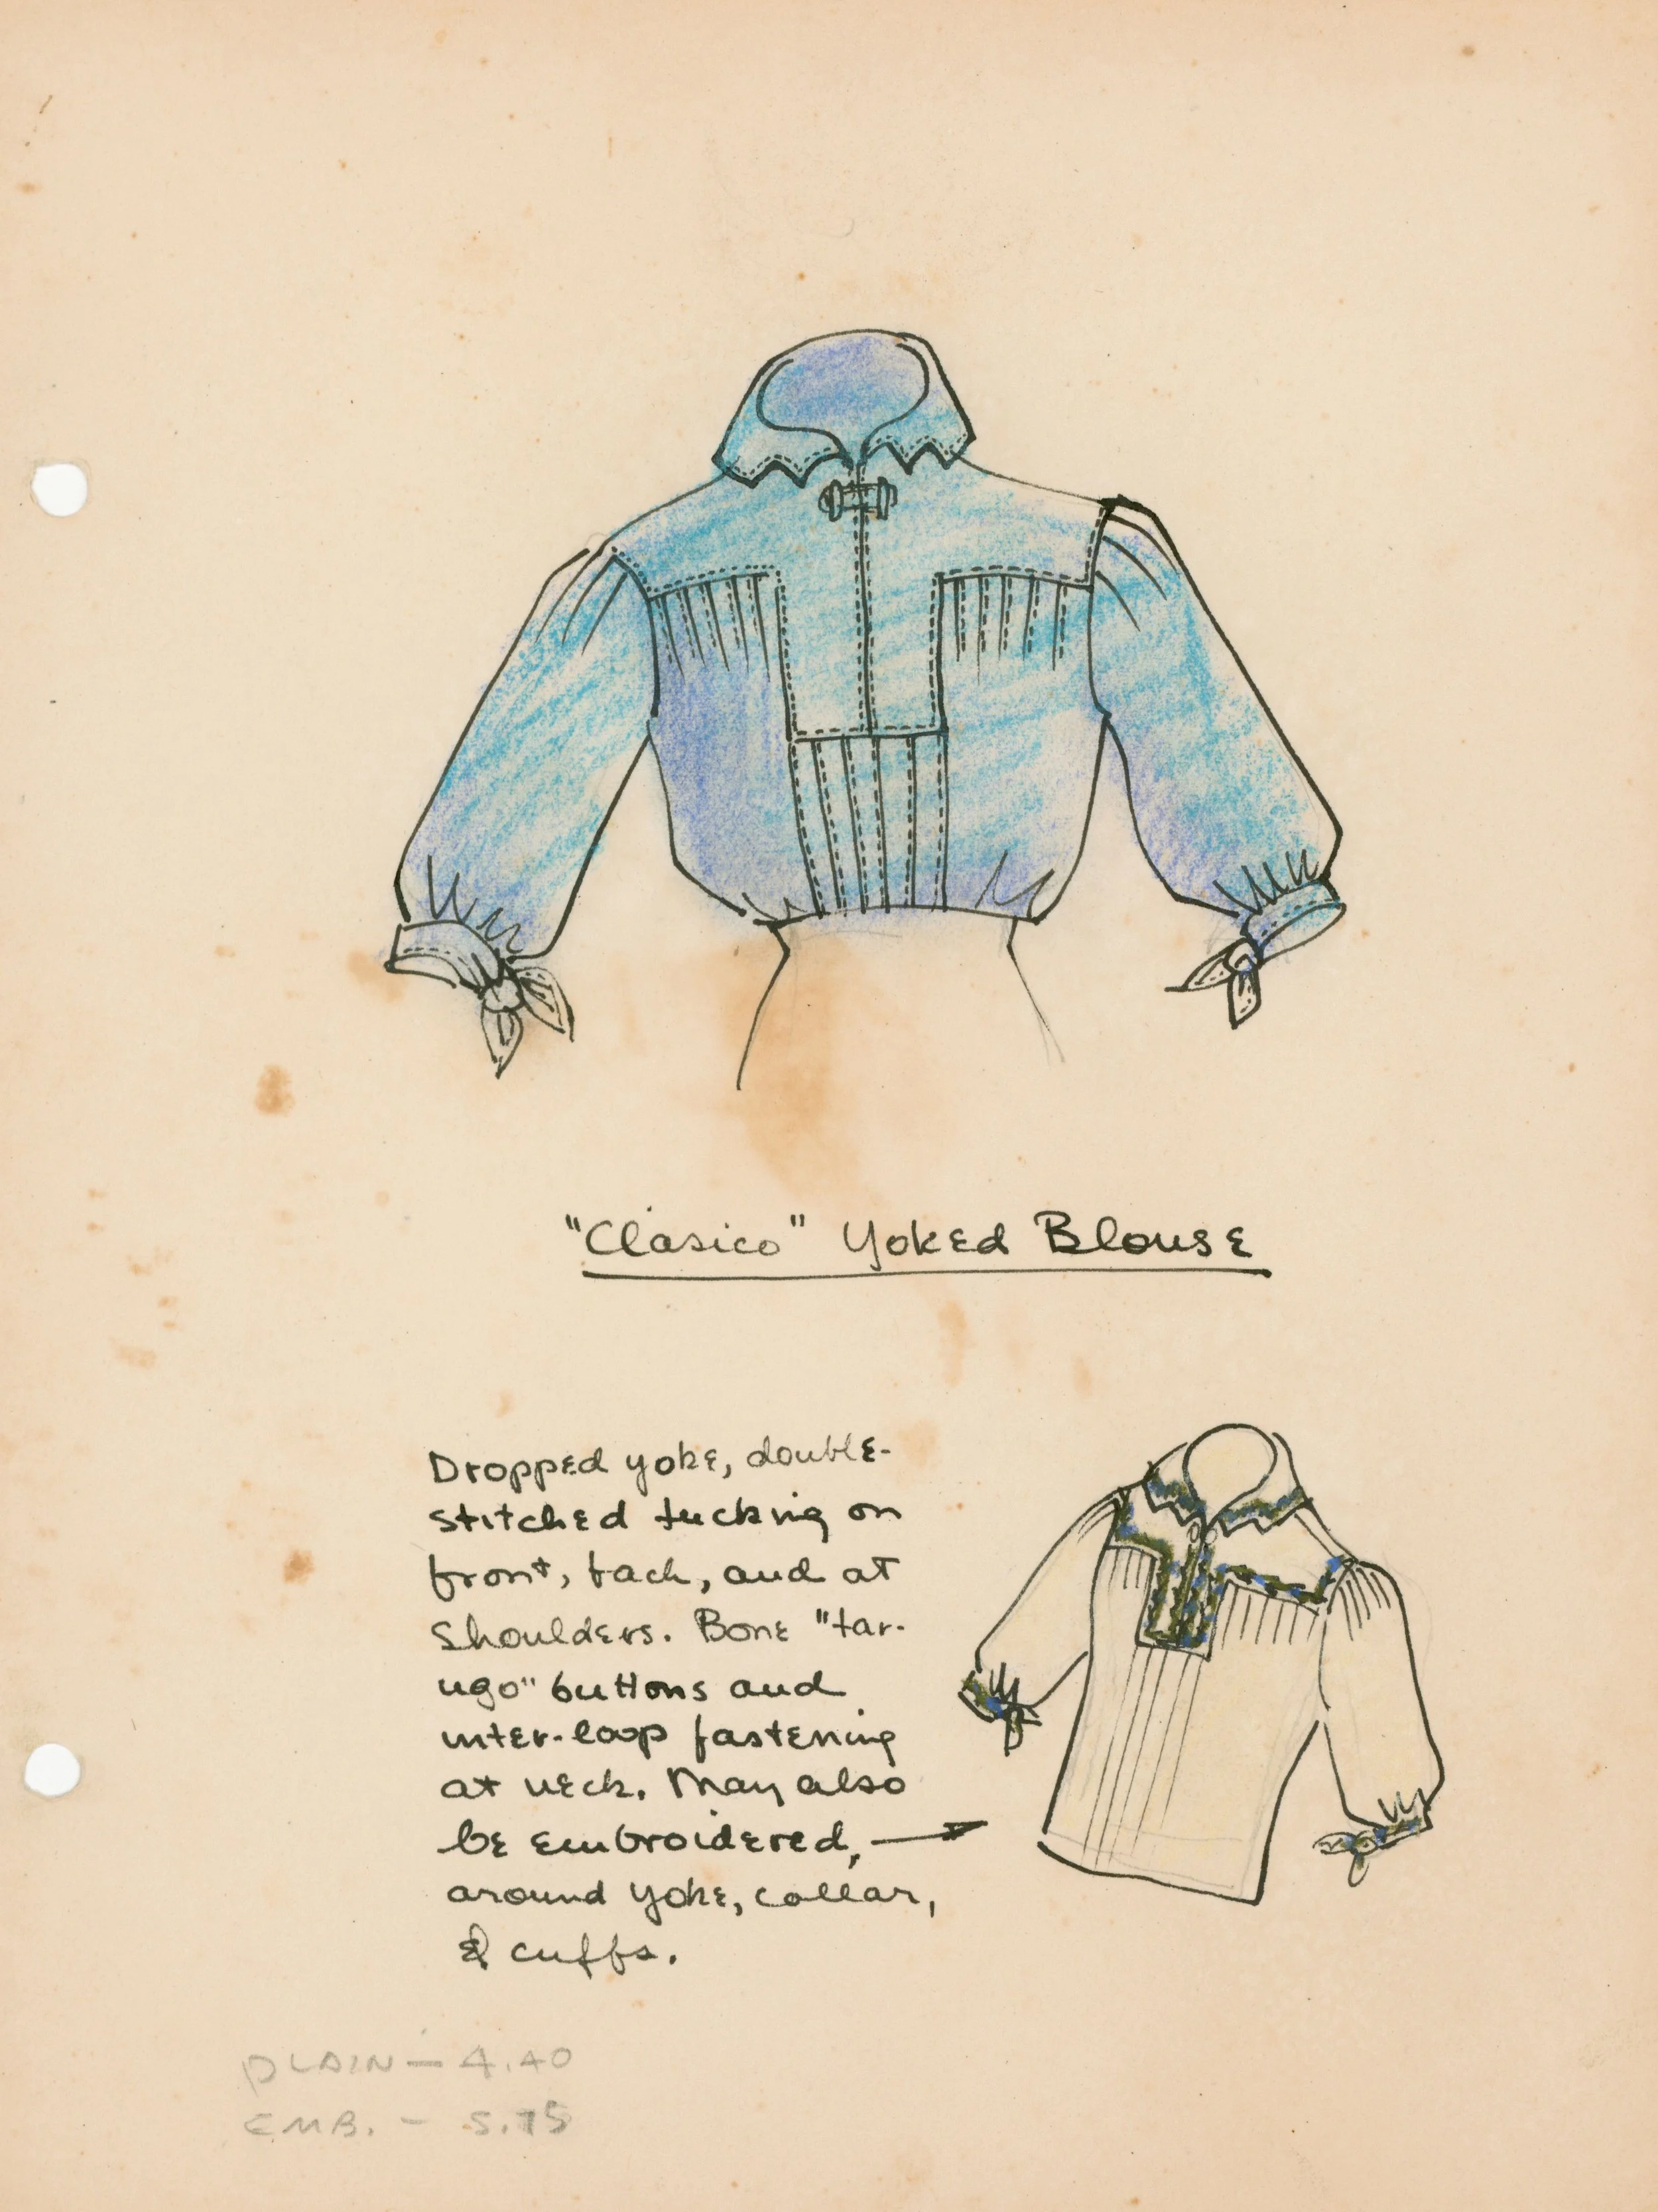 "Clásico" Yoked Blouse
Dropped yoke, double-
stitched tucking on
front, back, and at
shoulders. Bone "tar-
ugo" buttons and
inter-loop fastening
at neck. May also
be embroidered,
around yoke, collar,
& cuffs.
PLAIN — 4.40
EMB. — 5.75